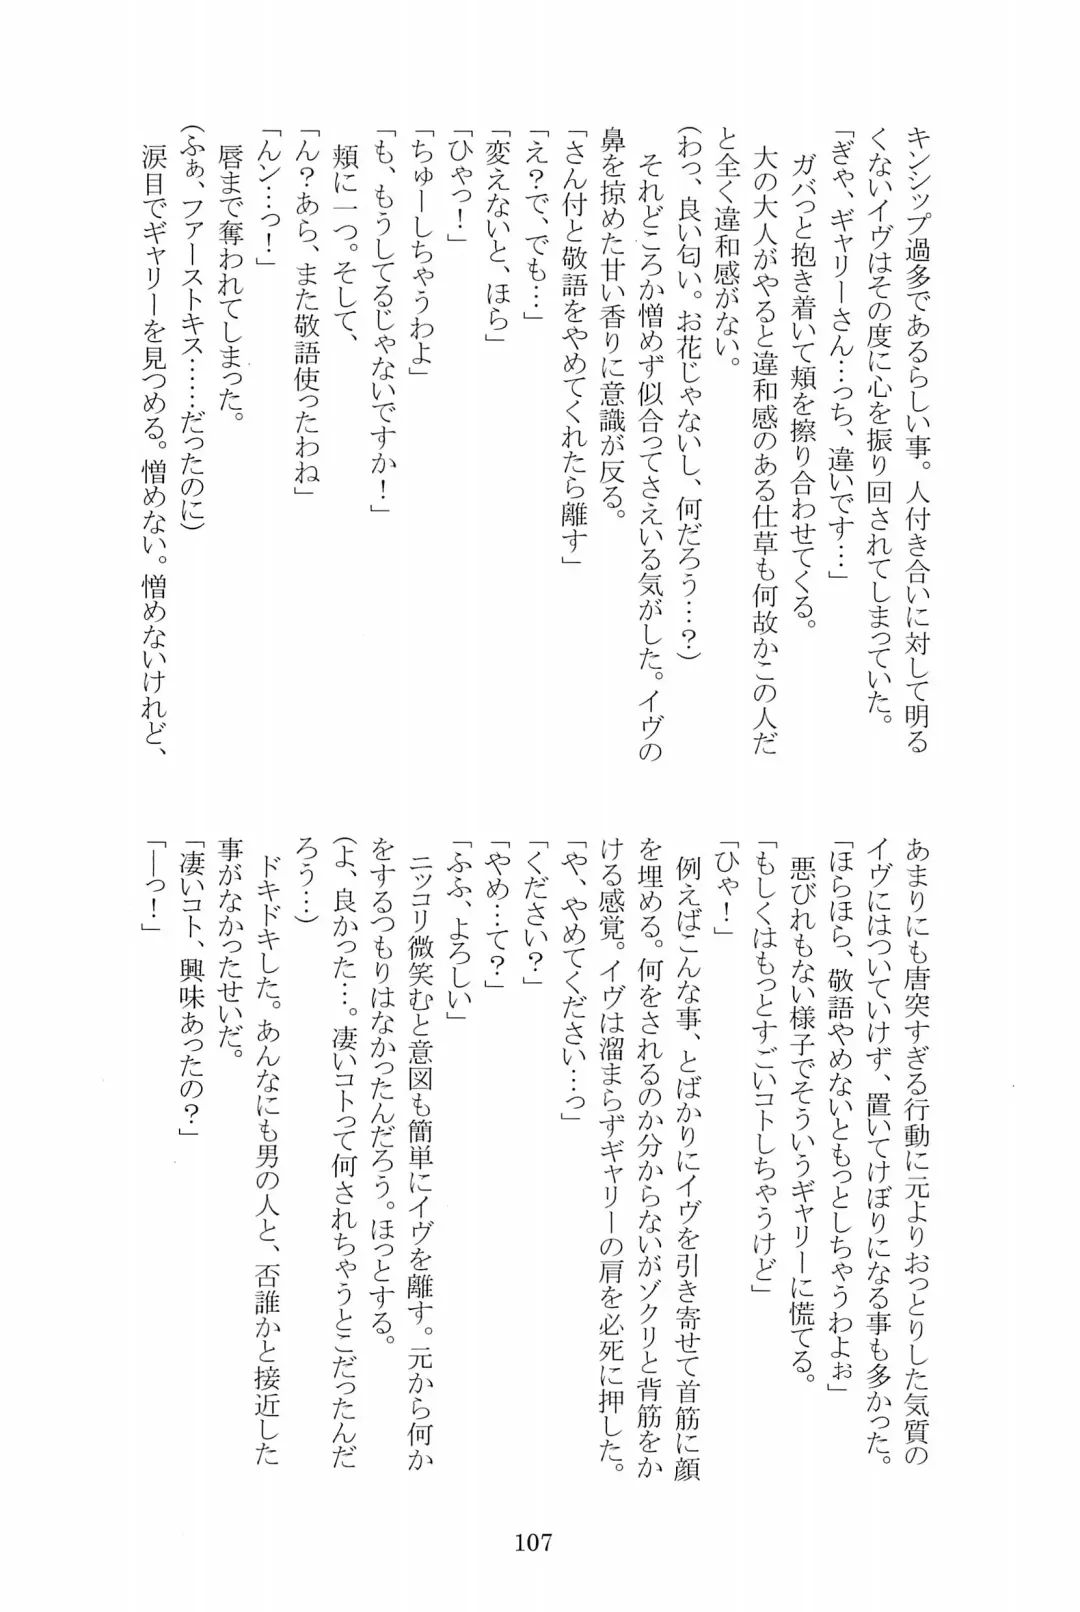 キンシップ過多であるらしい事。人付き合いに対して明る
くないイヴはその度に心を振り回されてしまっていた。
「ぎゃ、ギャリーさん…っち、違いです…」
ガバっと抱き着いて頬を擦り合わせてくる。
大の大人がやると違和感のある仕草も何故かこの人だ
と全く違和感がない。
(わっ、良い匂い。お花じゃないし、何だろう…？)
それどころか憎めず似合ってさえいる気がした。イヴの
鼻を掠めた甘い香りに意識が反る。
「さん付と敬語をやめてくれたら離す」
「え？で、でも…」
「変えないと、ほら」
「ひゃっ！」
「ちゅーしちゃうわよ」
「も、もうしてるじゃないですか！」
頬に一つ。そして、
「ん？あら、また敬語使ったわね」
「んン…っ！」
唇まで奪われてしまった。
(ふぁ、ファーストキス……だったのに)
涙目でギャリーを見つめる。憎めない。憎めないけれど、
あまりにも唐突すぎる行動に元よりおっとりした気質の
イヴにはついていけず、置いてけぼりになる事も多かった。
「ほらほら、敬語やめないともっとしちゃうわよぉ」
悪びれもない様子でそういうギャリーに慌てる。
「もしくはもっとすごいコトしちゃうけど」
「ひゃ！」
例えばこんな事、とばかりにイヴを引き寄せて首筋に顔
を埋める。何をされるのか分からないがゾクリと背筋をか
ける感覚。イヴは溜まらずギャリーの肩を必死に押した。
「や、やめてください…っ」
「ください？」
「やめ…て？」
「ふふ、よろしい」
ニッコリ微笑むと意図も簡単にイヴを離す。元から何か
をするつもりはなかったんだろう。ほっとする。
(よ、良かった…。凄いコトって何されちゃうとこだったんだ
ろう…)
ドキドキした。あんなにも男の人と、否誰かと接近した
事がなかったせいだ。
「凄いコト、興味あったの？」
「―っ！」
107